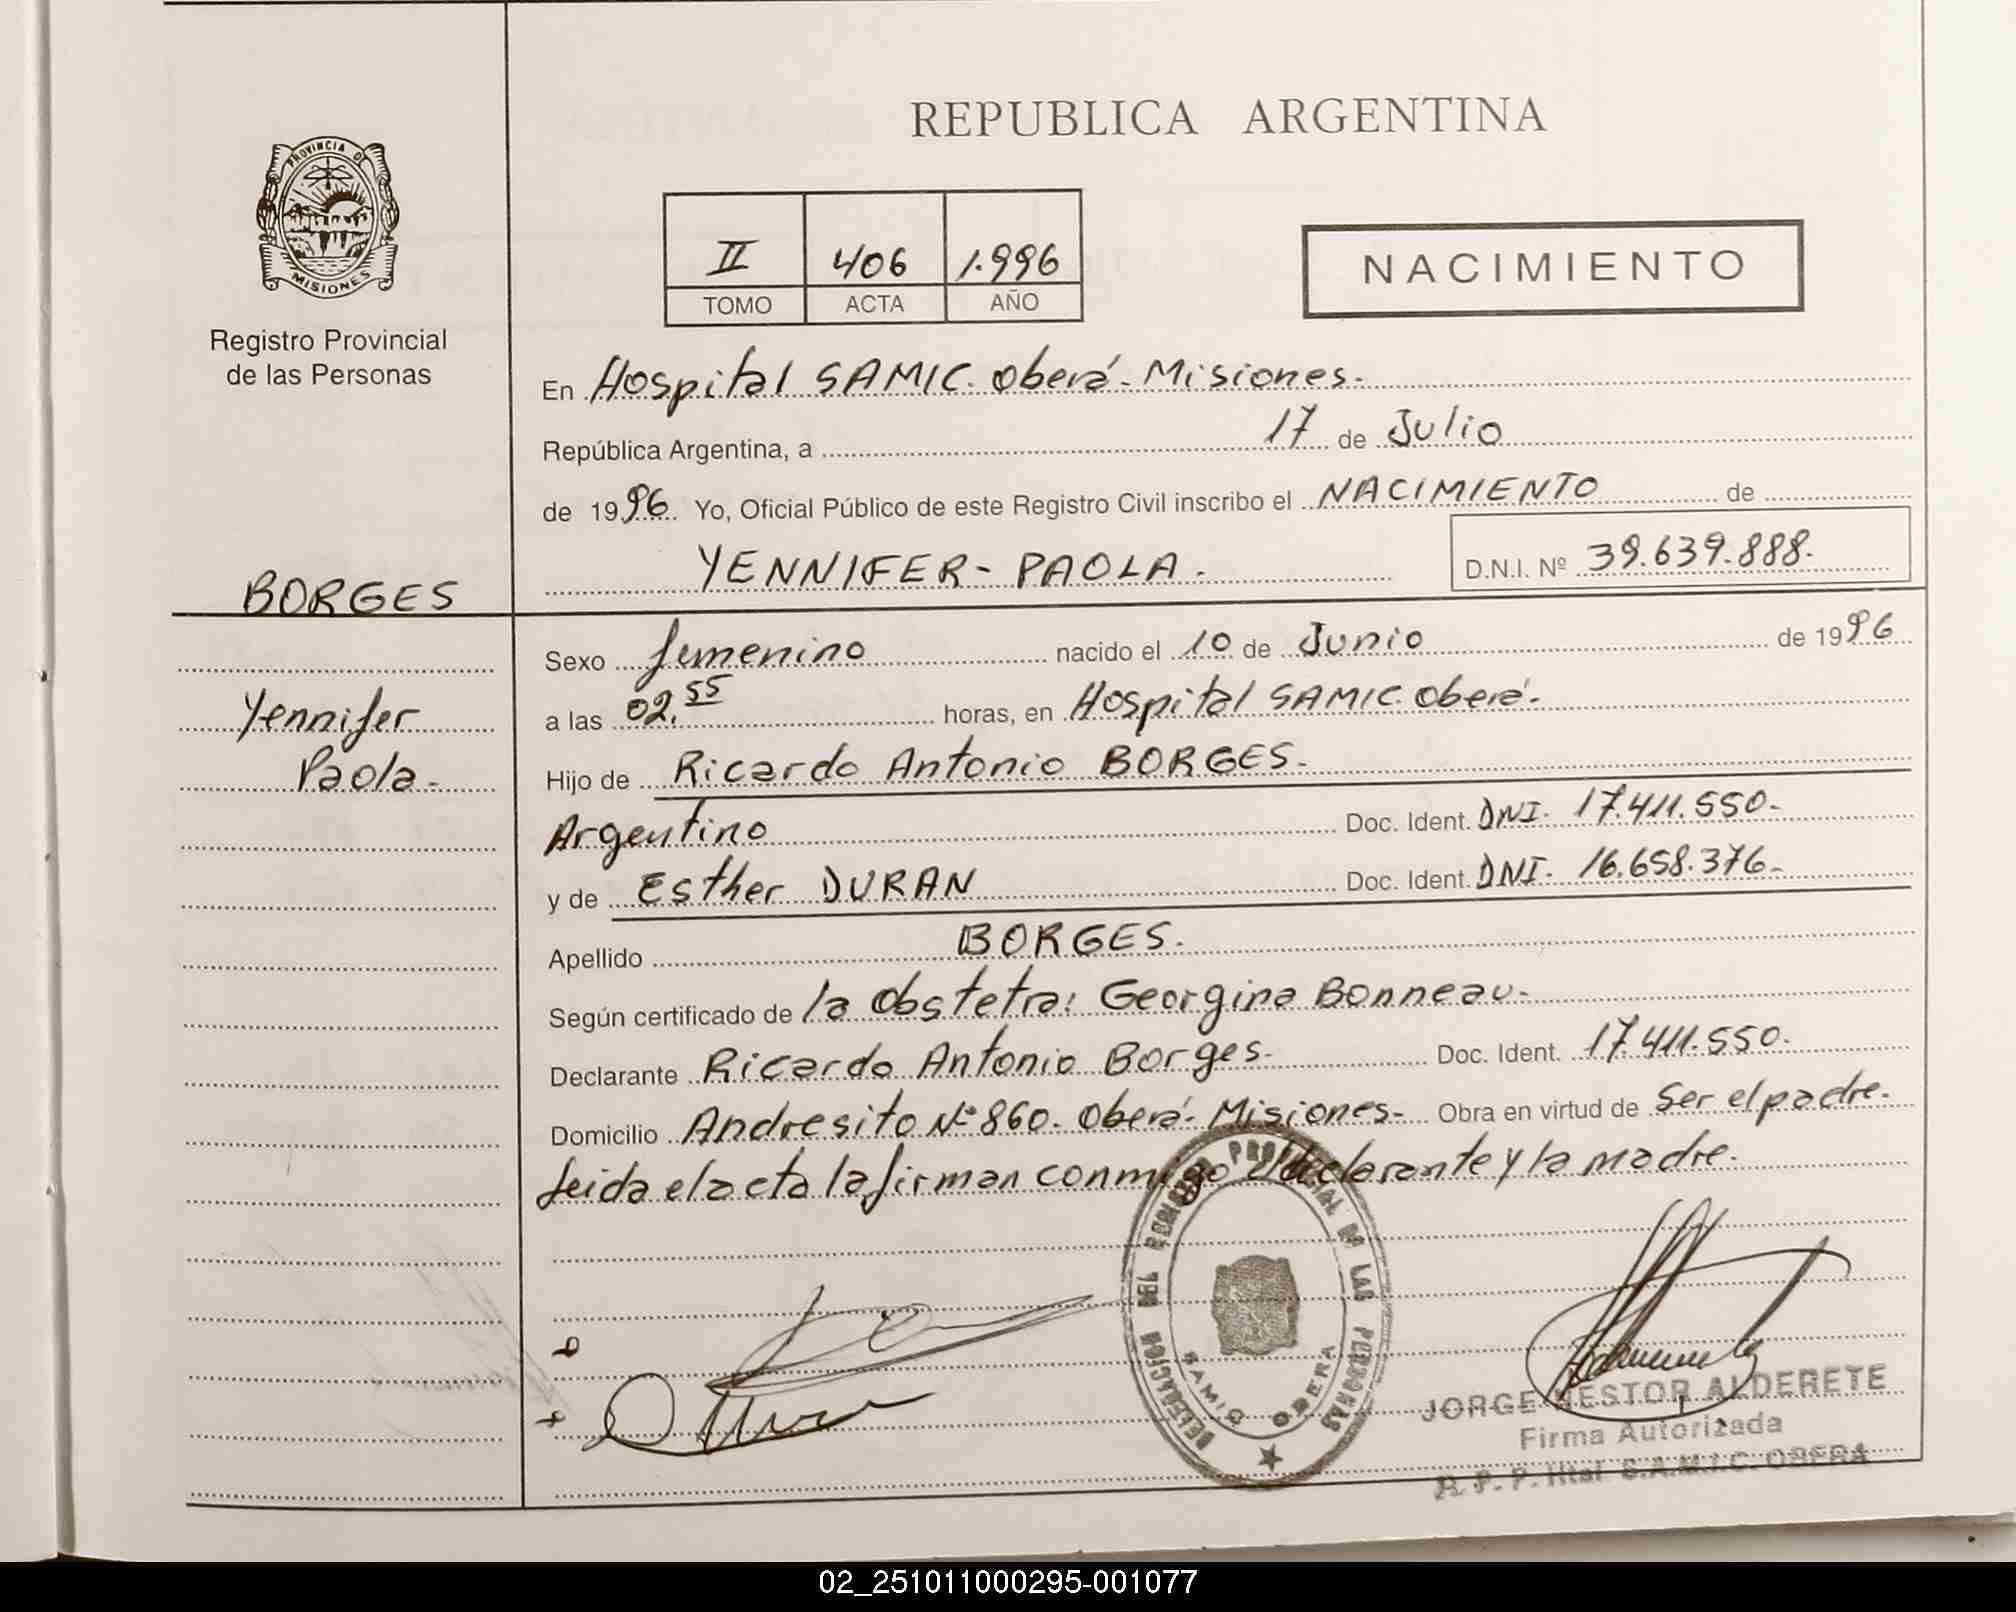 REPUBLICA ARGENTINA
PROVINCIA DE
MISIONES
Registro Provincial
de las Personas
II 406 1.996
TOMO ACTA AÑO
NACIMIENTO
En Hospital SAMIC. Oberá - Misiones.
República Argentina, a 17 de Julio
de 1996. Yo, Oficial Público de este Registro Civil inscribo el NACIMIENTO de
YENNIFER - PAOLA.
D.N.I. Nº 39.639.888.
BORGES
Yennifer
Paola.
Sexo femenino nacido el 10 de Junio de 1996
a las 02.55 horas, en Hospital SAMIC. Oberá.
Hijo de Ricardo Antonio BORGES.
Argentino Doc. Ident. DNI. 17.411.550.
y de Esther DURAN Doc. Ident. DNI. 16.658.376.
Apellido BORGES.
Según certificado de la Obstetra: Georgina Bonneau.
Declarante Ricardo Antonio Borges. Doc. Ident. 17.411.550.
Domicilio Andresito Nº 860. Oberá - Misiones. Obra en virtud de Ser el padre.
Leida el acta la firman conmigo el declarante y la madre.
DELEGACION DEL REGISTRO PROVINCIAL DE LAS PERSONAS
SAMIC OBERA
JORGE NESTOR ALDERETE
Firma Autorizada
R. P. P. Htal S.A.M.I.C. OBERA
02_251011000295-001077